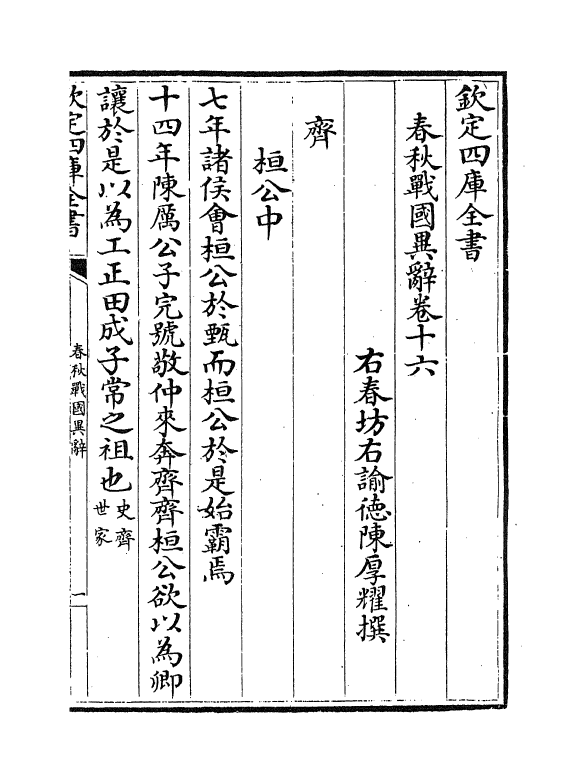 欽定四庫全書
春秋戰國異辭卷十六
右春坊右諭徳陳厚耀撰
齊
桓公中
七年諸侯會桓公於甄而桓公於是始霸焉
十四年陳厲公子完號敬仲來奔齊齊桓公欲以為卿
讓於是以為工正田成子常之祖也史齊
世家
欽定四庫全書
春秋戰國異辭
一